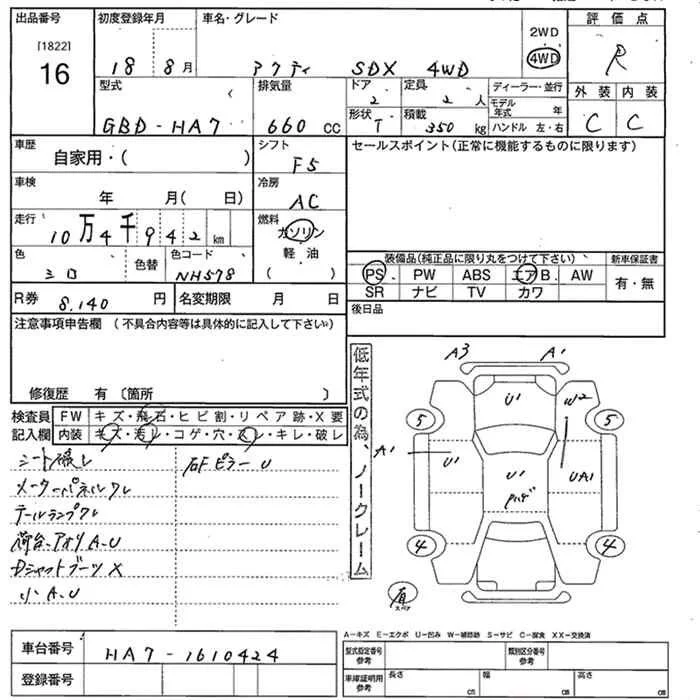 出品番号 初度登録年月 車名・グレード 2WD 評価点
[1822]
16 18 8月 アクティ SDX 4WD 4WD R
型式 排気量 ドア 定員 ディーラー・並行 外装 内装
2 2人 モデル年式 年
GBD-HA7 660 CC 形状 T 積載 350 kg ハンドル 左・右 C C
車歴 自家用・( ) シフト F5 セールスポイント(正常に機能するものに限ります)
車検 年 月( 日) 冷房 AC
走行 10万4千942km 燃料 ガソリン
軽油
( )
色 シロ 色替 色コード NH578
装備品(純正品に限り丸をつけて下さい) 新車保証書
PS PW ABS エアB. AW 有・無
SR ナビ TV カワ
R券 8,140 円 名変期限 月 日 後日品
注意事項申告欄 (不具合内容等は具体的に記入して下さい)
修復歴 有 〔箇所 〕
検査員記入欄 FW キズ・飛石・ヒビ割・リペア跡・X要
内装 キズ・汚レ・コゲ・穴・スレ・キレ・破レ
シート破レ 右Fピラー U
メーターパネルワレ
テールランプワレ
荷台、アオリ A.U
Dシャフトブーツ X
小 A.U
低年式の為、ノークレーム
A3 A1
U1 W2
5 5
A1 U1 U1 UA1
4 4
スペア
A-キズ E-エクボ U-凹み W-補修跡 S-サビ C-腐食 XX-交換済
車台番号 HA7-1610424
登録番号
型式指定番号 参考 類別区分番号 参考
車庫証明用 参考 長さ cm 幅 cm 高さ cm